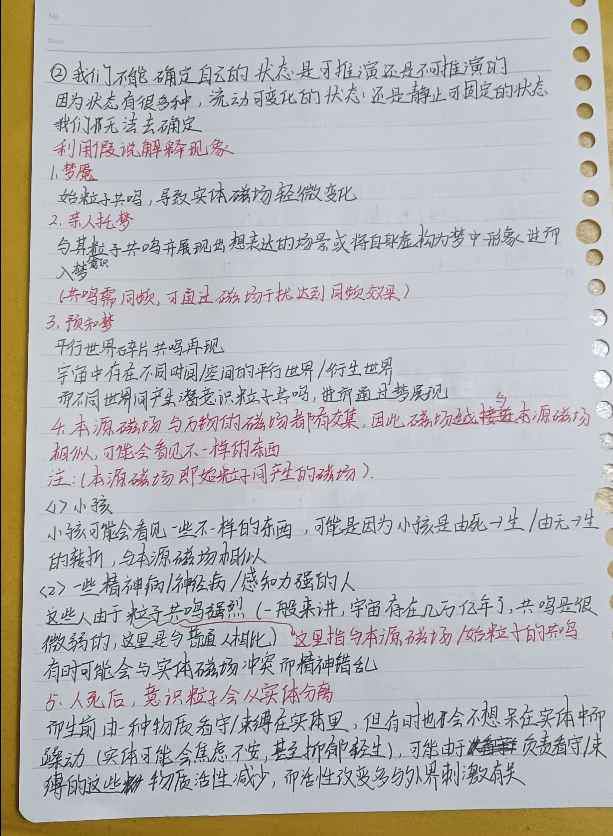 ②我们不能确定自己的状态是可推演还是不可推演的
因为状态有很多种，流动可变化的状态还是静止可固定的状态
我们都无法去确定
利用假说解释现象
1.梦魇
始粒子共鸣，导致实体磁场轻微变化
2.亲人托梦
与其粒子共鸣并展现出想表达的场景或将自身虚拟为梦中形象进而
入梦 意识
(共鸣需同频，可通过磁场干扰达到同频效果)
3.预知梦
平行世界碎片共鸣再现
宇宙中存在不同时间/空间的平行世界/衍生世界
而不同世界间产生潜意识粒子共鸣，进而通过梦展现
4.本源磁场与万物的磁场都有交集，因此磁场越与本源磁场
相似，可能会看见不一样的东西
注：(本源磁场即始粒子间产生的磁场)．
<1>小孩
小孩可能会看见一些不一样的东西，可能是因为小孩是由死→生/由无→生
的转折，与本源磁场相似
<2>一些精神病/神经病/感知力强的人
这些人由于粒子共鸣强烈(一般来讲，宇宙存在几万亿年了，共鸣是很
微弱的，这里是与普通人相比)这里指与本源磁场/始粒子的共鸣
有时可能会与实体磁场冲突而精神错乱
5.人死后，意识粒子会从实体分离
而生前由一种物质看守/束缚在实体里，但有时也会不想呆在实体中而
躁动(实体可能会焦虑不安，甚至抑郁轻生)，可能由于负责看守/束
缚的这些物质活性减少，而活性改变多与外界刺激有关